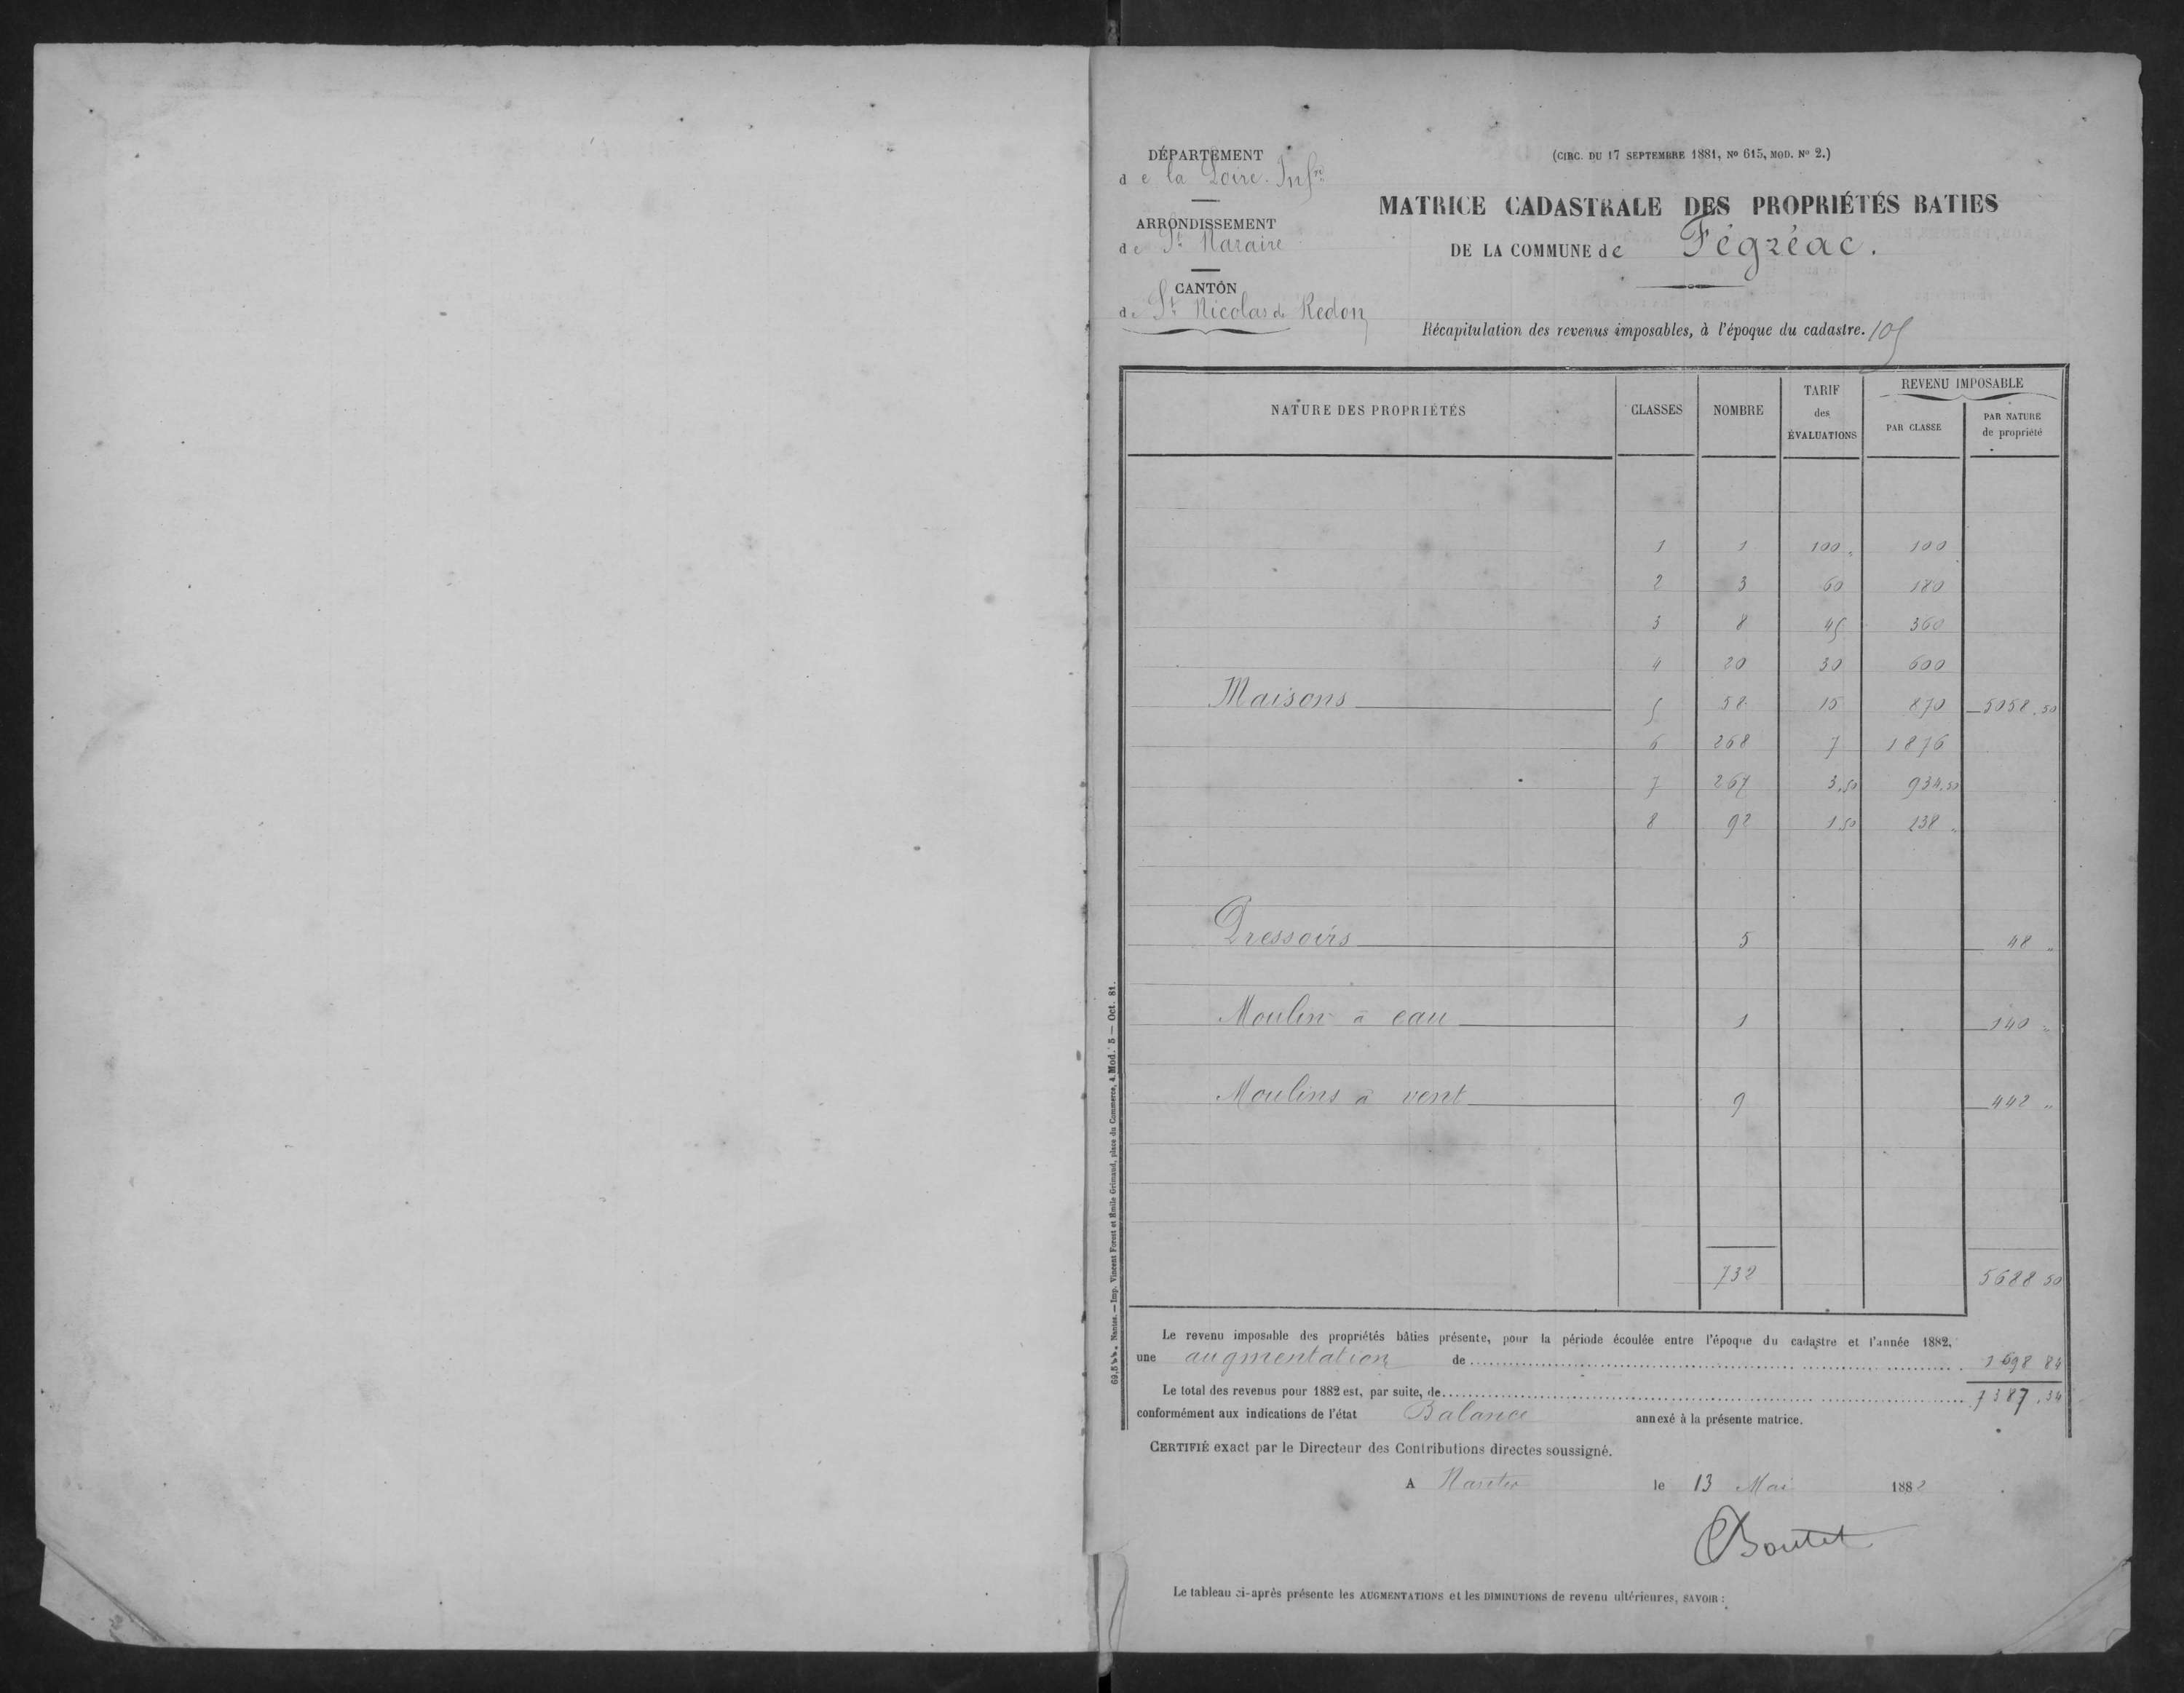 DÉPARTEMENT
de la Loire-Infre
ARRONDISSEMENT
de St Nazaire
CANTON
de St Nicolas de Redon
(CIRC. DU 17 SEPTEMBRE 1881, No 615, MOD. No 2.)
MATRICE CADASTRALE DES PROPRIÉTÉS BATIES
DE LA COMMUNE de Fégréac.
Récapitulation des revenus imposables, à l'époque du cadastre. 105
NATURE DES PROPRIÉTÉS CLASSES NOMBRE TARIF des ÉVALUATIONS REVENU IMPOSABLE PAR CLASSE PAR NATURE de propriété
1 1 100 " 100
2 3 60 180
3 8 45 360
4 20 30 600
Maisons 5 58 15 870 5058.50
6 268 7 1876
7 267 3,50 934,50
8 92 1.50 138 "
Pressoirs 5 48 "
Moulin à eau 1 140 "
Moulins à vent 9 442 "
732 5688 50
Le revenu imposable des propriétés bâties présente, pour la période écoulée entre l'époque du cadastre et l'année 1882,
une augmentation de 1698 84
Le total des revenus pour 1882 est, par suite, de 7387.34
conformément aux indications de l'état Balance annexé à la présente matrice.
CERTIFIÉ exact par le Directeur des Contributions directes soussigné.
A Nantes le 13 Mai 1882
Boutet
Le tableau ci-après présente les AUGMENTATIONS et les DIMINUTIONS de revenu ultérieures, SAVOIR :
Nantes. — Imp. Vincent Forest et Emile Grimaud, place du Commerce, 4. Mod. 5 — Oct. 81.